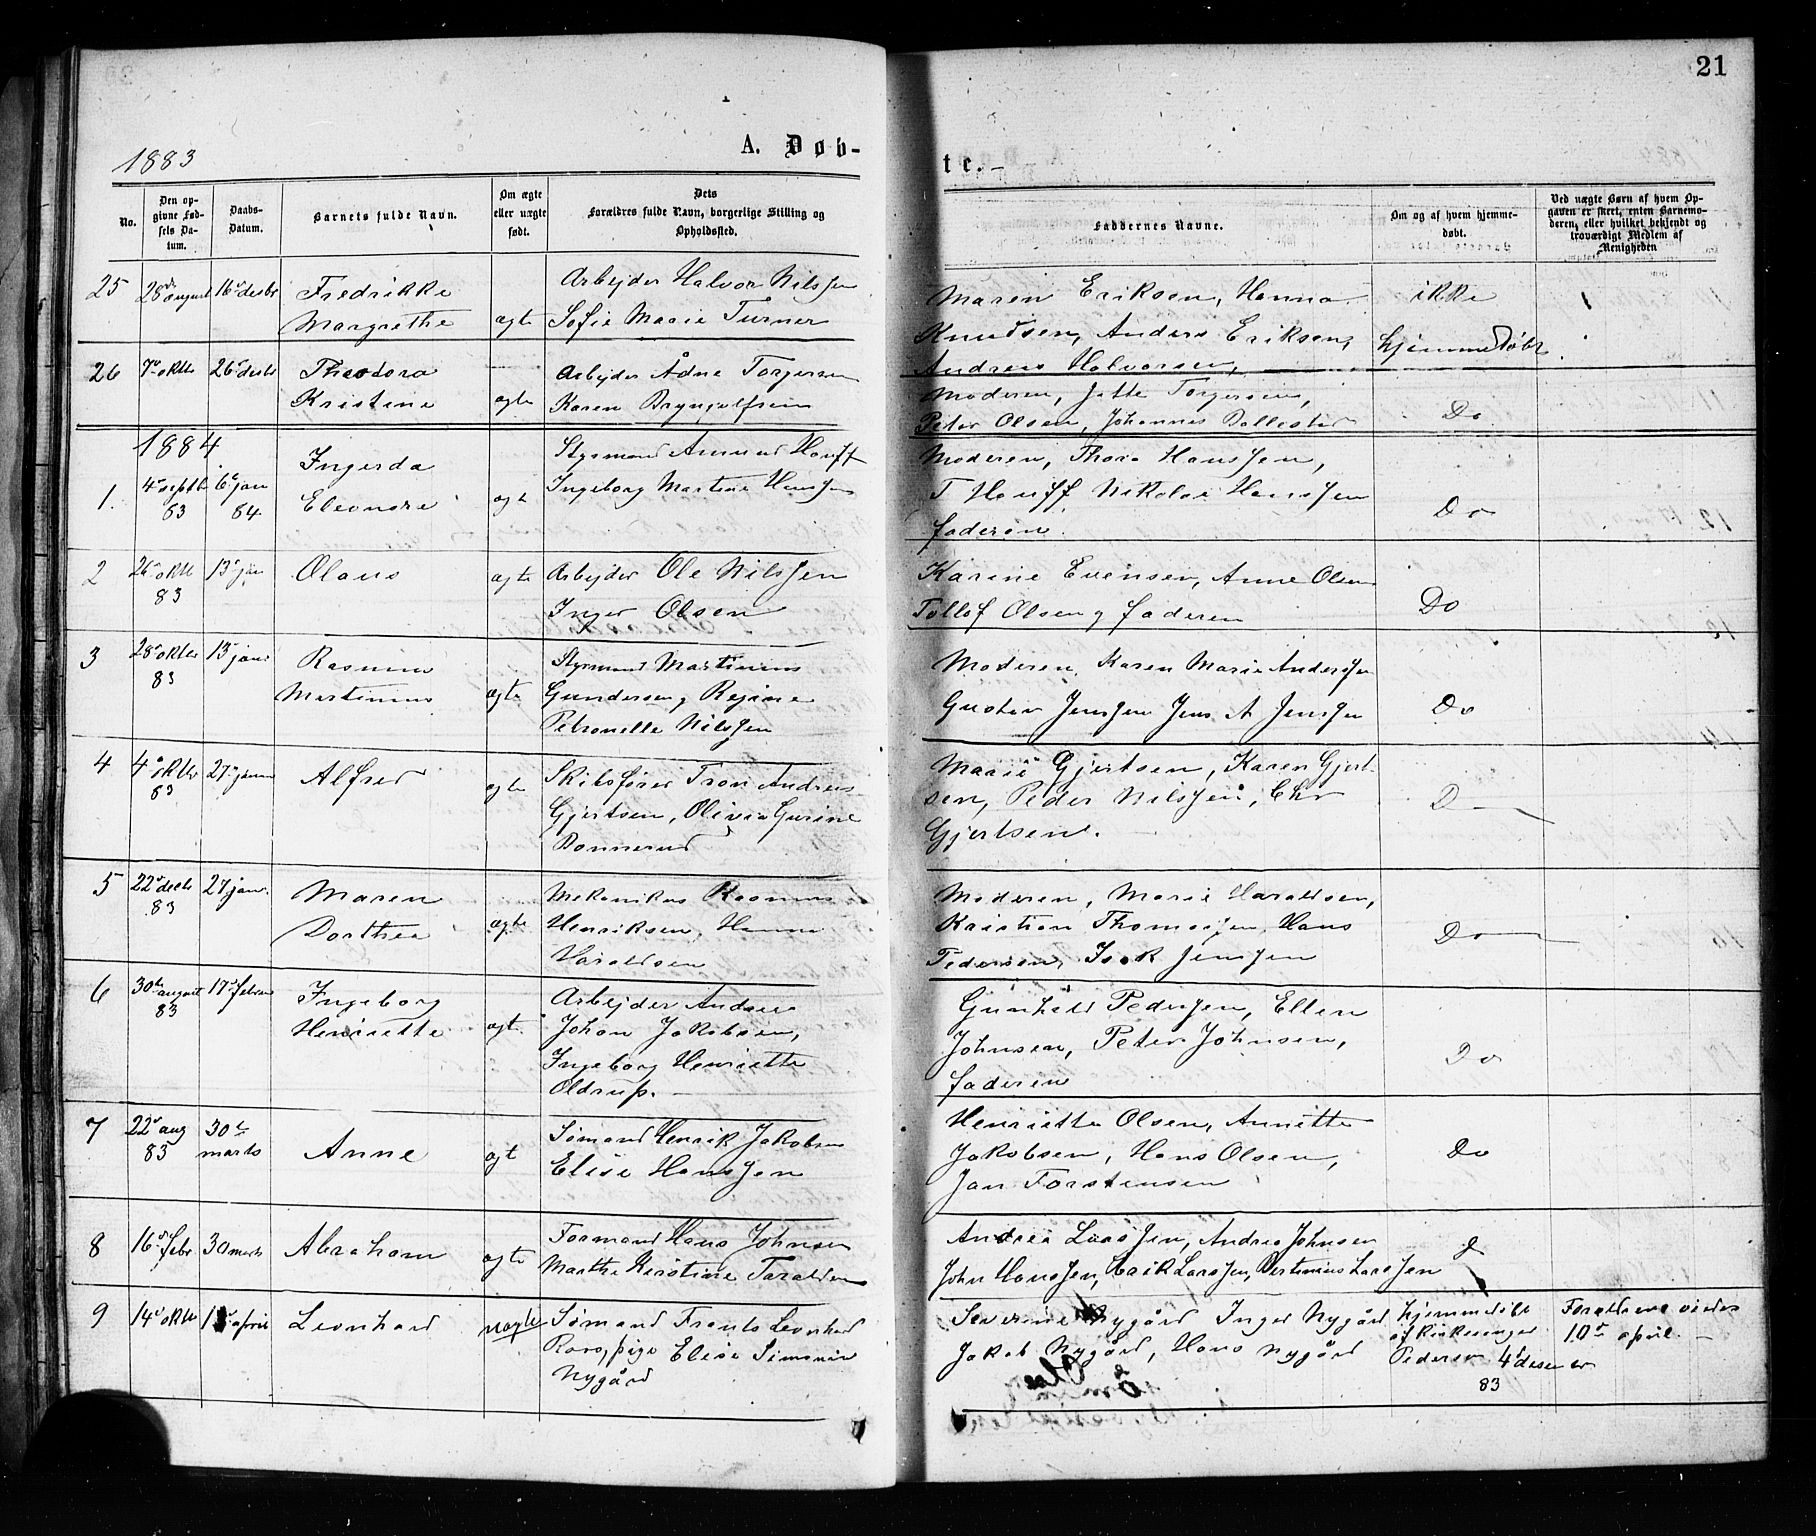 21
1883
A. Døb-
te.
No.
Den op-
givne Fød-
sels Da-
tum.
Daabs-
Datum.
Barnets fulde Navn.
Om ægte
eller uægte
født.
Dets
Forældres fulde Navn, borgerlige Stilling og
Opholdssted.
Faddernes Navne.
Om og af hvem hjemme-
døbt.
Ved uægte Børn af hvem Op-
gaven er skeet, enten Barnemo-
deren, eller hvilket bekjendt og
troværdigt Medlem af
Menigheden
25 28de august 16de desbr Fredrikke
Margrethe
ægte
Arbejder Halvor Nilssen
Sofie Marie Turner
Maren Eriksen, Hanna
Knudsen, Anders Eriksen,
Andreas Halvorsen,
ikke
hjemmedøbt
26 7de oktbr 26de desbr Theodora
Kristine
ægte
Arbejder Ådne Torgersen
Karen Bryngelfsen
Moderen, Jette Torgersen,
Peter Olsen, Johannes
Do
1884
1. 4de septbr 83 6te jan 84. Ingerda
Eleonore
ægte
Styrmand Hauff
Ingeborg Martine Hanssen
Moderen, Thora Hanssen,
T Hauff Nikolai Hanssen
faderen.
Do
2 26de oktb 83 13de jan Olaus
ægte
Arbejder Ole Nilssen
Inger Olsen
Karine Evensen, Anne Olsen
Tollef Olsen og faderen
Do
3 28de oktbr 83 13de janr Rasmus
Martinius
ægte
Styrmand Martinius
Gundersen og Regine
Petronelle Nilssen
Moderen, Karen Marie Anderssen
Gustav Jenssen Jens A Jenssen
Do
4 4de oktbr 83 27de januar Alfred
ægte
Skibsfører Tron Andreas
Gjertsen, Olivia Gurine
Bonnerud
Marie Gjertsen, Karen Gjert-
sen, Peder Nilssen, Chr
Gjertsen.
D
5 22de decbr 83 27 janr. Maren
Dorthea
ægte
Mekanikus Rasmus
Henriksen, Hanna
Haraldsen
Moderen, Marie Haraldsen,
Kristian Thomassen, Hans
Pedersen, Isak Jenssen
Do
6 30te august 83 17de februar Ingeborg
Henriette
ægte
Arbejder Andreas
Johan Jakobsen,
Ingeborg Henriette
Oldrup.
Gunhild Pederssen, Ellen
Johnsen, Peter Johnsen,
faderen
Do
7 22de aug 83 30te marts Anne
ægt
Sømand Henrik Jakobsen
Elise Hanssen
Henriette Olsen, Annette
Jakobsen, Hans Olsen,
Jan Torstensen
Do
8 16de febr 30 marts Abraham
ægte
Formand Hans Johnsen
Marthe Kirstine Taraldsen
Andrea Larssen, Andrea Johnsen
John Hanssen, Erik Larssen, Bertinius Larssen
D
9 14de oktbr april Leonhard
uægte
Sømand Frants Leonhard
Roos, pige Elise Simonie
Nygård
Severine Nygård Inger Nygård
Jakob Nygård, Hans Nygård
hjemmedøbt
af kirkesanger
Pedersen 4de desember
83
Forældrene viedes
10de april.